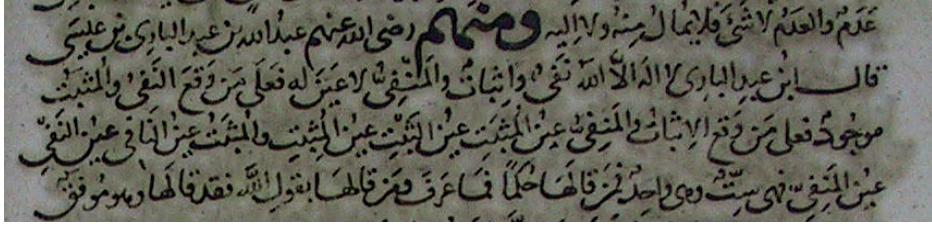 عدم والعدم لا شئ فلا يمال منه ولا اليه ومنهم رضى الله عنهم عبد الله بن عبد البادى بن عيسى
قال ابن عبد البادى لا اله الا الله نفى واثبات والمنفى لا عين له فعلى من وقع النفى والمثبت
موجود فعلى من وقع الاثبات والمنفى عين المثبت عين المثبت عين المثبت والمثبت عين النافى عين النفى
عين المنفى فهى ست وهى واحد فمن قالها حكما فما عرف ومن قالها بقول الله فقد قالها وهو موفق